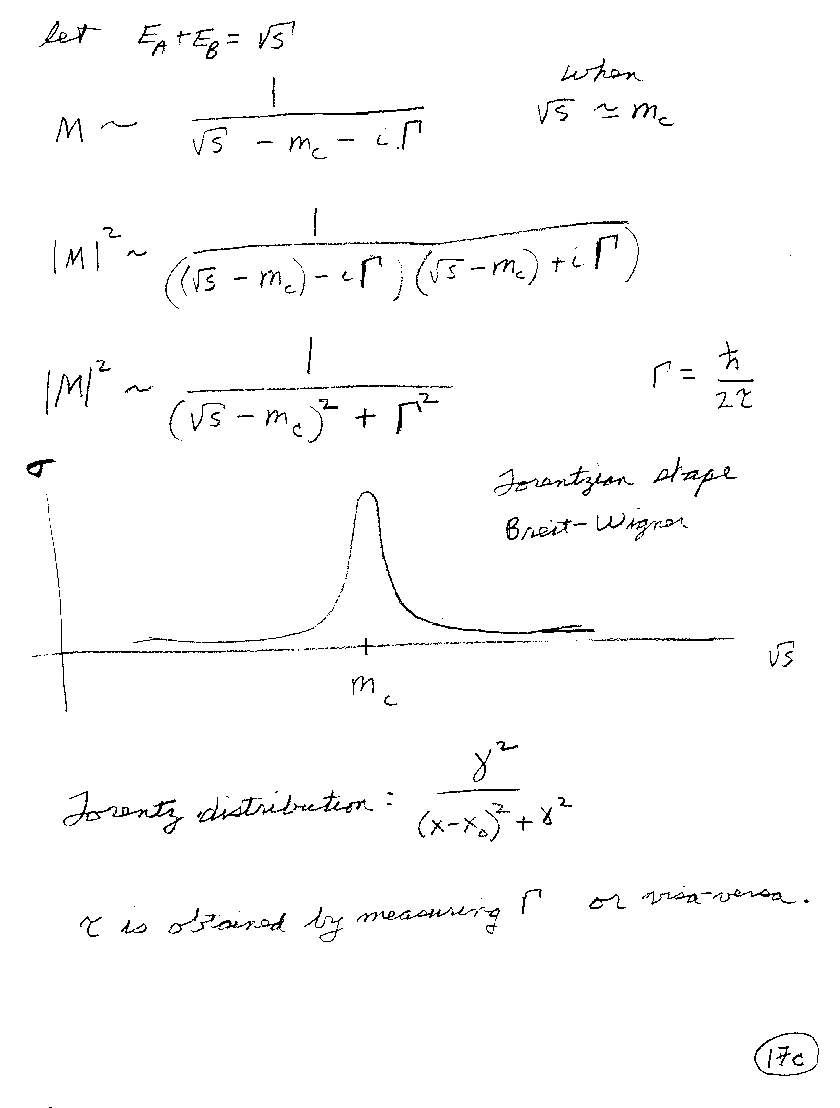 let E_A + E_B = √s
M ~ 1 / (√s - m_c - iΓ) when √s ≃ m_c
|M|² ~ 1 / ((√s - m_c) - iΓ)(√s - m_c) + iΓ)
|M|² ~ 1 / ((√s - m_c)² + Γ²) Γ = ħ / 2τ
σ
Lorentzian shape
Breit-Wigner
√s
m_c
Lorentz distribution: γ² / ((x-x₀)² + γ²)
τ is obtained by measuring Γ or visa-versa.
17c